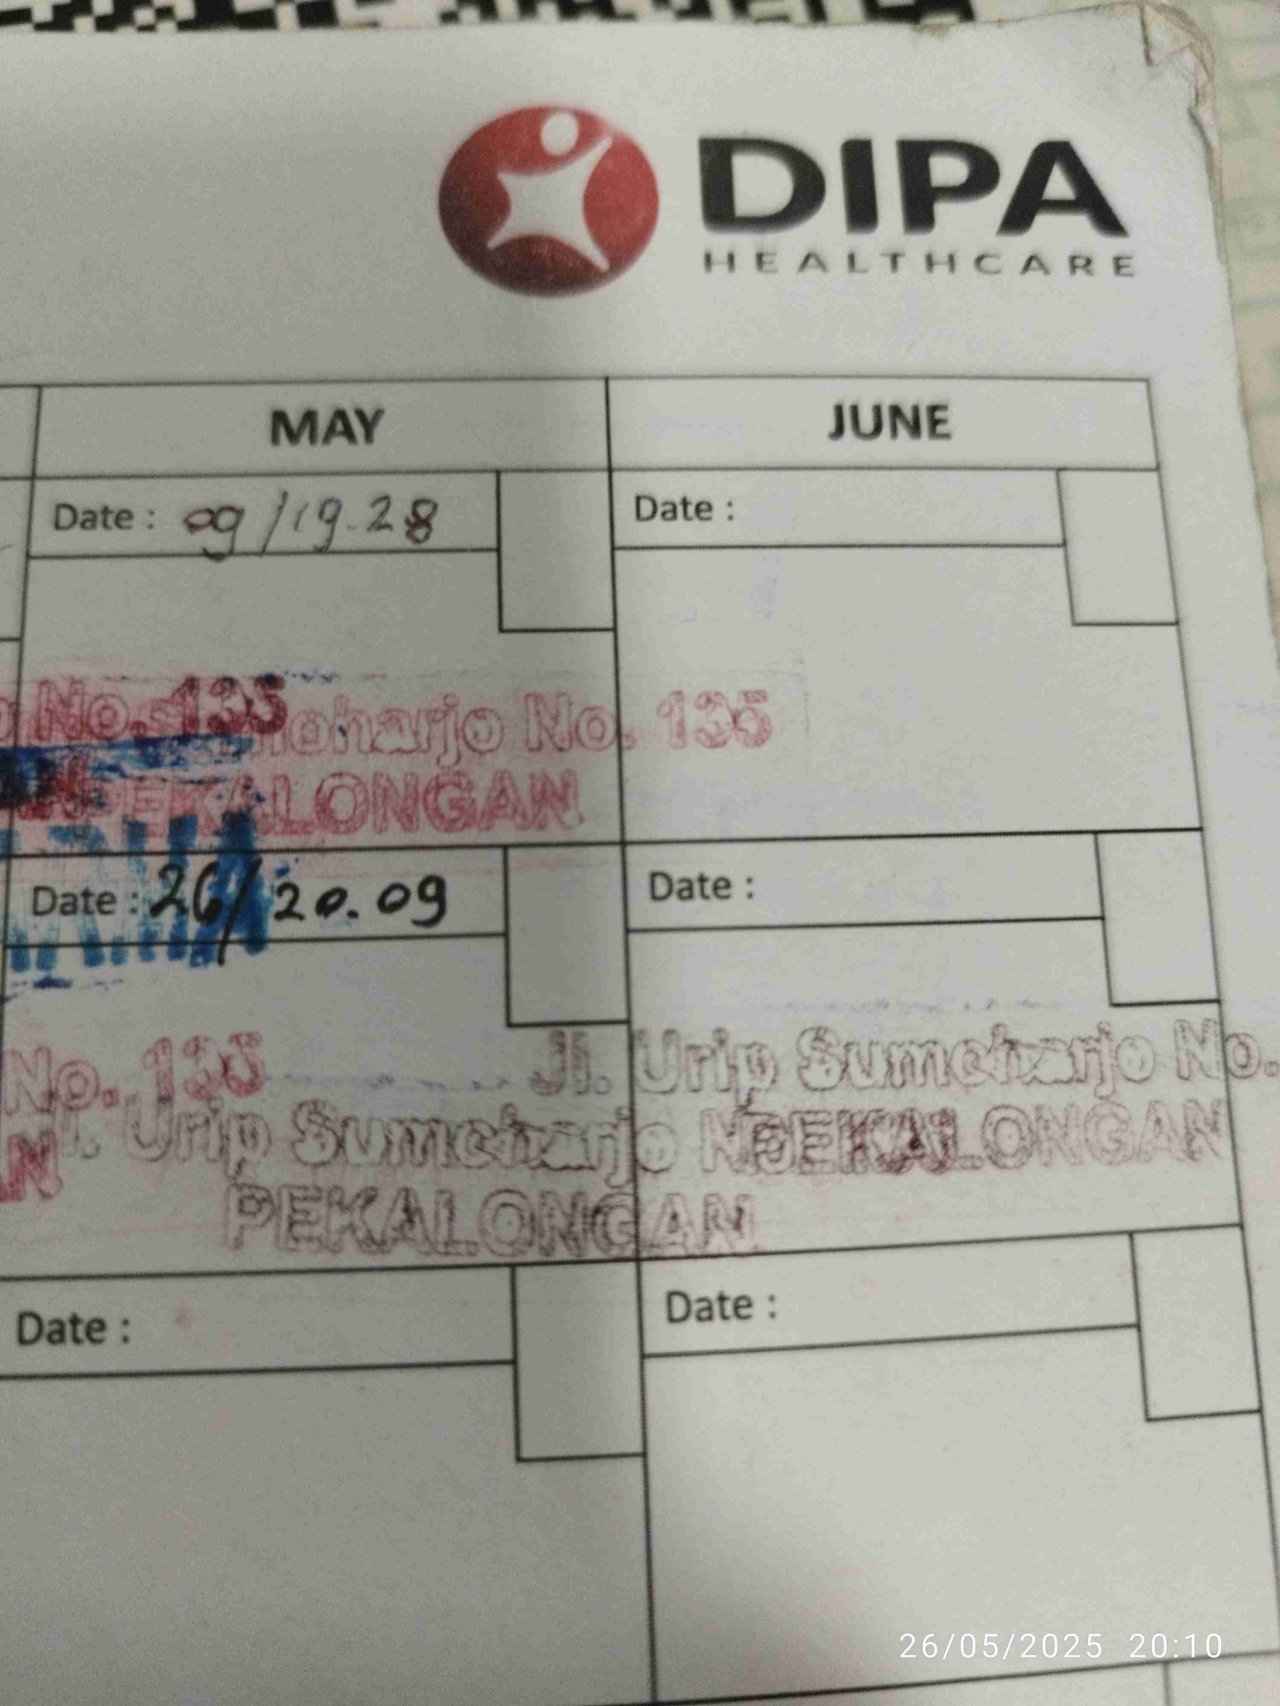 DIPA
HEALTHCARE
MAY
JUNE
Date : 09/19.28
Date :
No. 135
oharjo No. 135
PEKALONGAN
Date : 26/20.09
Date :
No. 135
Jl. Urip Sumoharjo No.
N
l. Urip Sumoharjo N
PEKALONGAN
PEKALONGAN
Date :
Date :
26/05/2025 20:10